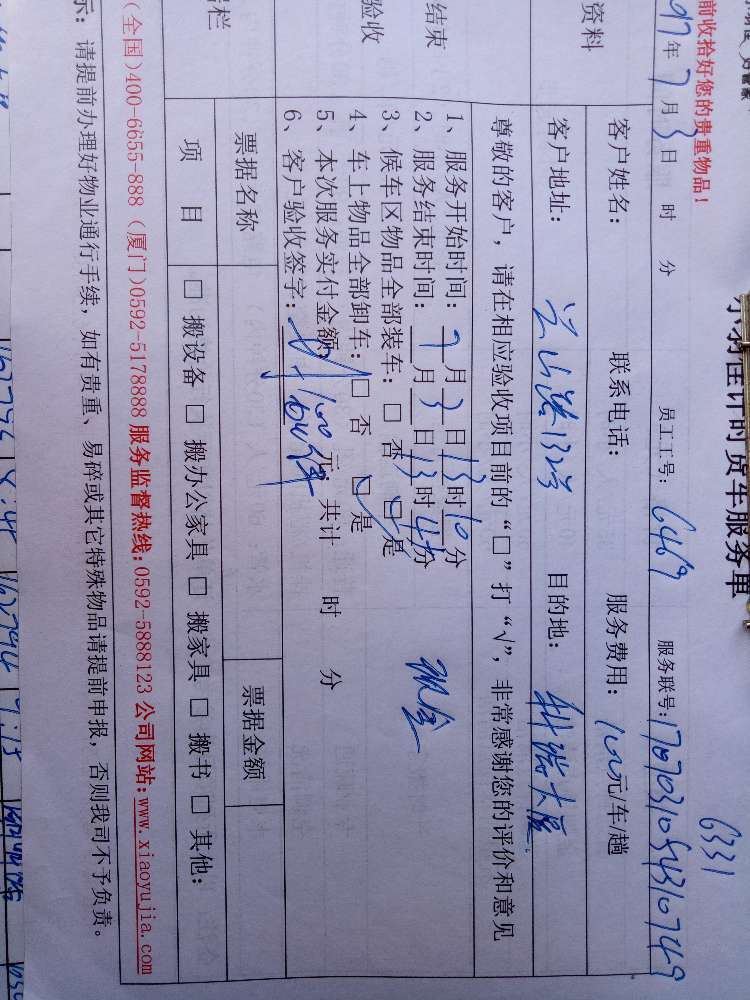 计时货车服务单
6331
前收拾好您的贵重物品!
年 7 月 3 日 时 分 员工工号: 6469 服务联号: 1707031054310749
资料
客户姓名: 联系电话: 服务费用: 100元/车/趟
客户地址: 兰山路1323 目的地: 科瑞大厦
结束
验收
尊敬的客户，请在相应验收项目前的“□”打“√”，非常感谢您的评价和意见
1、服务开始时间: 7 月 3 日 13 时 10 分
2、服务结束时间: 7 月 3 日 13 时 45 分 现金
3、候车区物品全部装车: □ 否 □ 是
4、车上物品全部卸车: □ 否 □ 是
5、本次服务实付金额: 100 元; 共计 时 分
6、客户验收签字:
栏
票据名称 票据金额
项 目 □ 搬设备 □ 搬办公家具 □ 搬家具 □ 搬书 □ 其他:
(全国)400-6655-888 (厦门)0592-5178888 服务监督热线:0592-5888123 公司网站:www.xiaoyujia.com
示: 请提前办理好物业通行手续，如有贵重、易碎或其它特殊物品请提前申报，否则我司不予负责。